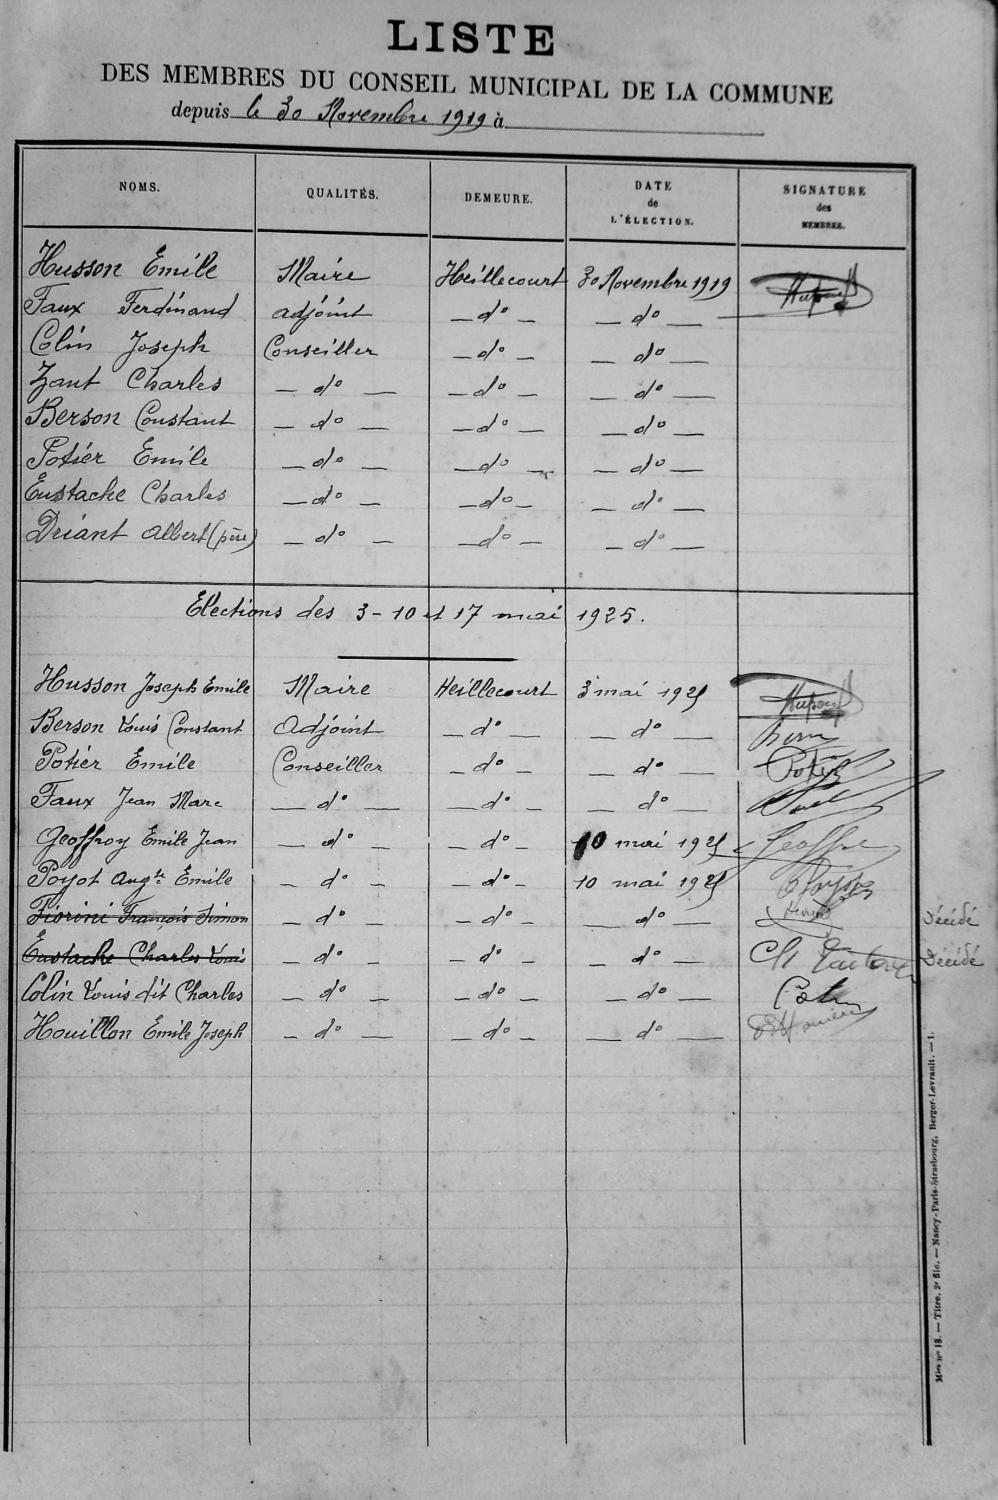 LISTE
DES MEMBRES DU CONSEIL MUNICIPAL DE LA COMMUNE
depuis le 30 Novembre 1919 à
NOMS. QUALITÉS. DEMEURE. DATE de L'ÉLECTION. SIGNATURE des MEMBRES.
Husson Emile Maire Heillecourt 30 Novembre 1919
Faux Ferdinand adjoint — do — — do —
Colin Joseph Conseiller — do — — do —
Zant Charles — do — — do — — do —
Berson Constant — do — — do — — do —
Potier Emile — do — — do — — do —
Eustache Charles — do — — do — — do —
Driant Albert (père) — do — — do — — do —
Elections des 3 - 10 et 17 mai 1925.
Husson Joseph Emile Maire Heillecourt 3 mai 1925
Berson Louis Constant Adjoint — do — — do —
Potier Emile Conseiller — do — — do — Potier
Faux Jean Marc — do — — do — do —
Geoffroy Emile Jean — do — — do — 10 mai 1925
Poyot Augte Emile — do — — do — 10 mai 1925
Fiorini François Simon — do — — do — — do — Décédé
Eustache Charles Louis — do — — do — — do — Décédé
Colin Louis dit Charles — do — — do — — do — Colin
Houillon Emile Joseph — do — — do — — do —
Mies no 18. — Titre, 2e file. — Nancy-Paris-Strasbourg, Berger-Levrault. — 1.